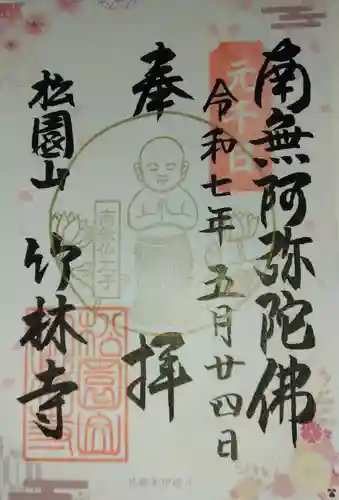 南無阿弥陀佛
令和七年五月廿四日
奉拝
松園山
竹林寺